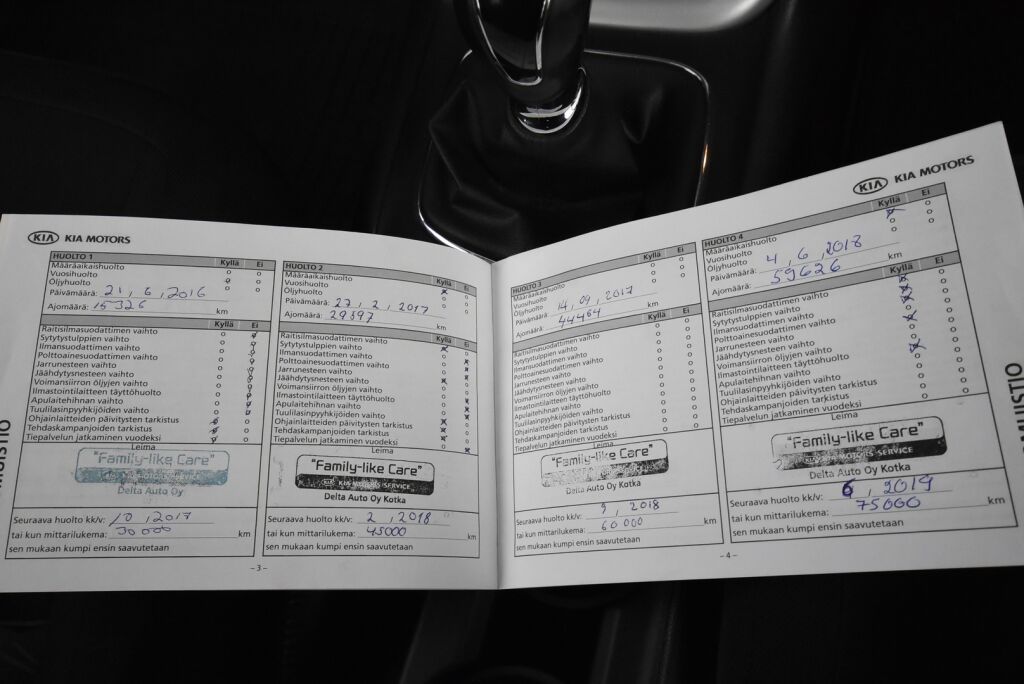 KIA KIA MOTORS
HUOLTO 1 Kyllä Ei
Määräaikaishuolto
Vuosihuolto
Öljyhuolto
Päivämäärä: 21, 6, 2016
Ajomäärä: 15326 km
Kyllä Ei
Raitisilmasuodattimen vaihto
Sytytystulppien vaihto
Ilmansuodattimen vaihto
Polttoainesuodattimen vaihto
Jarrunesteen vaihto
Jäähdytysnesteen vaihto
Voimansiirron öljyjen vaihto
Ilmastointilaitteen täyttöhuolto
Apulaitehihnan vaihto
Tuulilasinpyyhkijöiden vaihto
Ohjainlaitteiden päivitysten tarkistus
Tehdaskampanjoiden tarkistus
Tiepalvelun jatkaminen vuodeksi
Leima
"Family-like Care"
KIA MOTORS SERVICE
Delta Auto Oy
Seuraava huolto kk/v: 10, 2017
tai kun mittarilukema: 30 000 km
sen mukaan kumpi ensin saavutetaan
HUOLTO 2 Kyllä Ei
Määräaikaishuolto
Vuosihuolto
Öljyhuolto
Päivämäärä: 27, 2, 2017
Ajomäärä: 29397 km
Kyllä Ei
Raitisilmasuodattimen vaihto
Sytytystulppien vaihto
Ilmansuodattimen vaihto
Polttoainesuodattimen vaihto
Jarrunesteen vaihto
Jäähdytysnesteen vaihto
Voimansiirron öljyjen vaihto
Ilmastointilaitteen täyttöhuolto
Apulaitehihnan vaihto
Tuulilasinpyyhkijöiden vaihto
Ohjainlaitteiden päivitysten tarkistus
Tehdaskampanjoiden tarkistus
Tiepalvelun jatkaminen vuodeksi
Leima
"Family-like Care"
KIA KIA MOTORS SERVICE
Delta Auto Oy Kotka
Seuraava huolto kk/v: 2, 2018
tai kun mittarilukema: 45000 km
sen mukaan kumpi ensin saavutetaan
- 3 -
KIA KIA MOTORS
HUOLTO 3 Kyllä Ei
Määräaikaishuolto
Vuosihuolto
Öljyhuolto
Päivämäärä: 14, 09, 2017
Ajomäärä: 44464 km
Kyllä Ei
Raitisilmasuodattimen vaihto
Sytytystulppien vaihto
Ilmansuodattimen vaihto
Polttoainesuodattimen vaihto
Jarrunesteen vaihto
Jäähdytysnesteen vaihto
Voimansiirron öljyjen vaihto
Ilmastointilaitteen täyttöhuolto
Apulaitehihnan vaihto
Tuulilasinpyyhkijöiden vaihto
Ohjainlaitteiden päivitysten tarkistus
Tehdaskampanjoiden tarkistus
Tiepalvelun jatkaminen vuodeksi
Leima
"Family-like Care"
Delta Auto Oy Kotka
Seuraava huolto kk/v: 9, 2018
tai kun mittarilukema: 60 000 km
sen mukaan kumpi ensin saavutetaan
HUOLTO 4 Kyllä Ei
Määräaikaishuolto
Vuosihuolto
Öljyhuolto
Päivämäärä: 4, 6, 2018
Ajomäärä: 59626 km
Kyllä Ei
Raitisilmasuodattimen vaihto
Sytytystulppien vaihto
Ilmansuodattimen vaihto
Polttoainesuodattimen vaihto
Jarrunesteen vaihto
Jäähdytysnesteen vaihto
Voimansiirron öljyjen vaihto
Ilmastointilaitteen täyttöhuolto
Apulaitehihnan vaihto
Tuulilasinpyyhkijöiden vaihto
Ohjainlaitteiden päivitysten tarkistus
Tehdaskampanjoiden tarkistus
Tiepalvelun jatkaminen vuodeksi
Leima
"Family-like Care"
KIA MOTORS SERVICE
Delta Auto Oy Kotka
Seuraava huolto kk/v: 6, 2019
tai kun mittarilukema: 75000 km
sen mukaan kumpi ensin saavutetaan
- 4 -